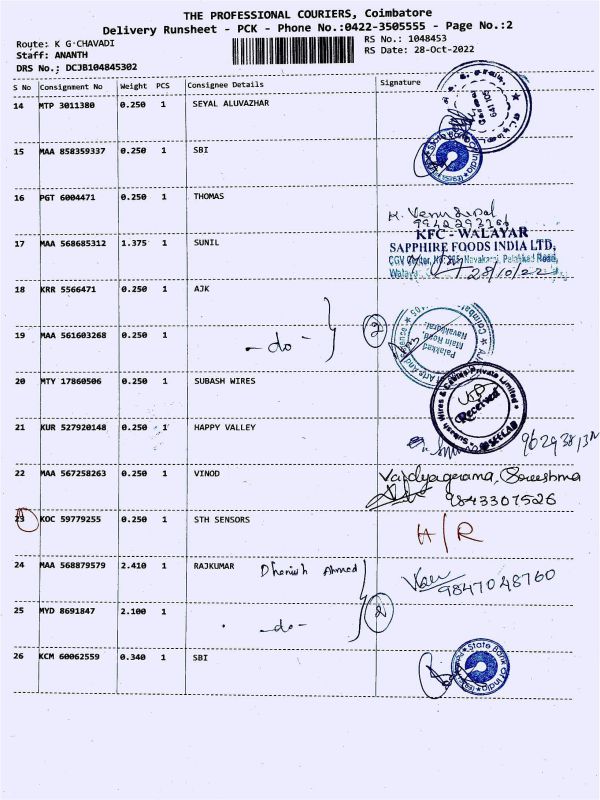 THE PROFESSIONAL COURIERS, Coimbatore
Delivery Runsheet - PCK - Phone No.:0422-3505555 - Page No.:2
Route: K G CHAVADI
Staff: ANANTH
DRS No.; DCJB104845302
RS No.: 1048453
RS Date: 28-Oct-2022
S No Consignment No Weight PCS Consignee Details Signature
14 MTP 3011380 0.250 1 SEYAL ALUVAZHAR
641 105
15 MAA 858359337 0.250 1 SBI
State Bank of India
16 PGT 6004471 0.250 1 THOMAS
17 MAA 568685312 1.375 1 SUNIL
KFC - WALAYAR
SAPPHIRE FOODS INDIA LTD,
Palakkad Road,
28/10/22
18 KRR 5566471 0.250 1 AJK
19 MAA 561603268 0.250 1 -do- 2
Main Road,
Palakkad
20 MTY 17860506 0.250 1 SUBASH WIRES
Subash Wires & Cables Private Limited
Received
21 KUR 527920148 0.250 1 HAPPY VALLEY
22 MAA 567258263 0.250 1 VINOD
9843307526
23 KOC 59779255 0.250 1 STH SENSORS H/R
24 MAA 568879579 2.410 1 RAJKUMAR Dhanish Ahmed
9847048760
25 MYD 8691847 2.100 1 -do- 2
26 KCM 60062559 0.340 1 SBI
State Bank of India